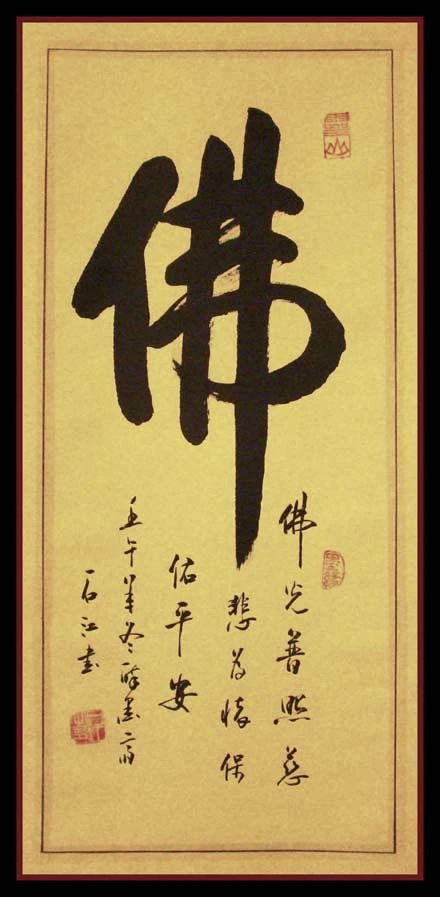 佛
佛光普照慈
悲为怀保
佑平安
壬午年冬醉墨斋
石江书